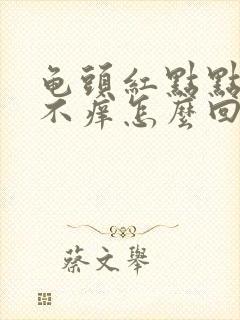 龟頭紅點點
不痒怎麼回
蔡文舉